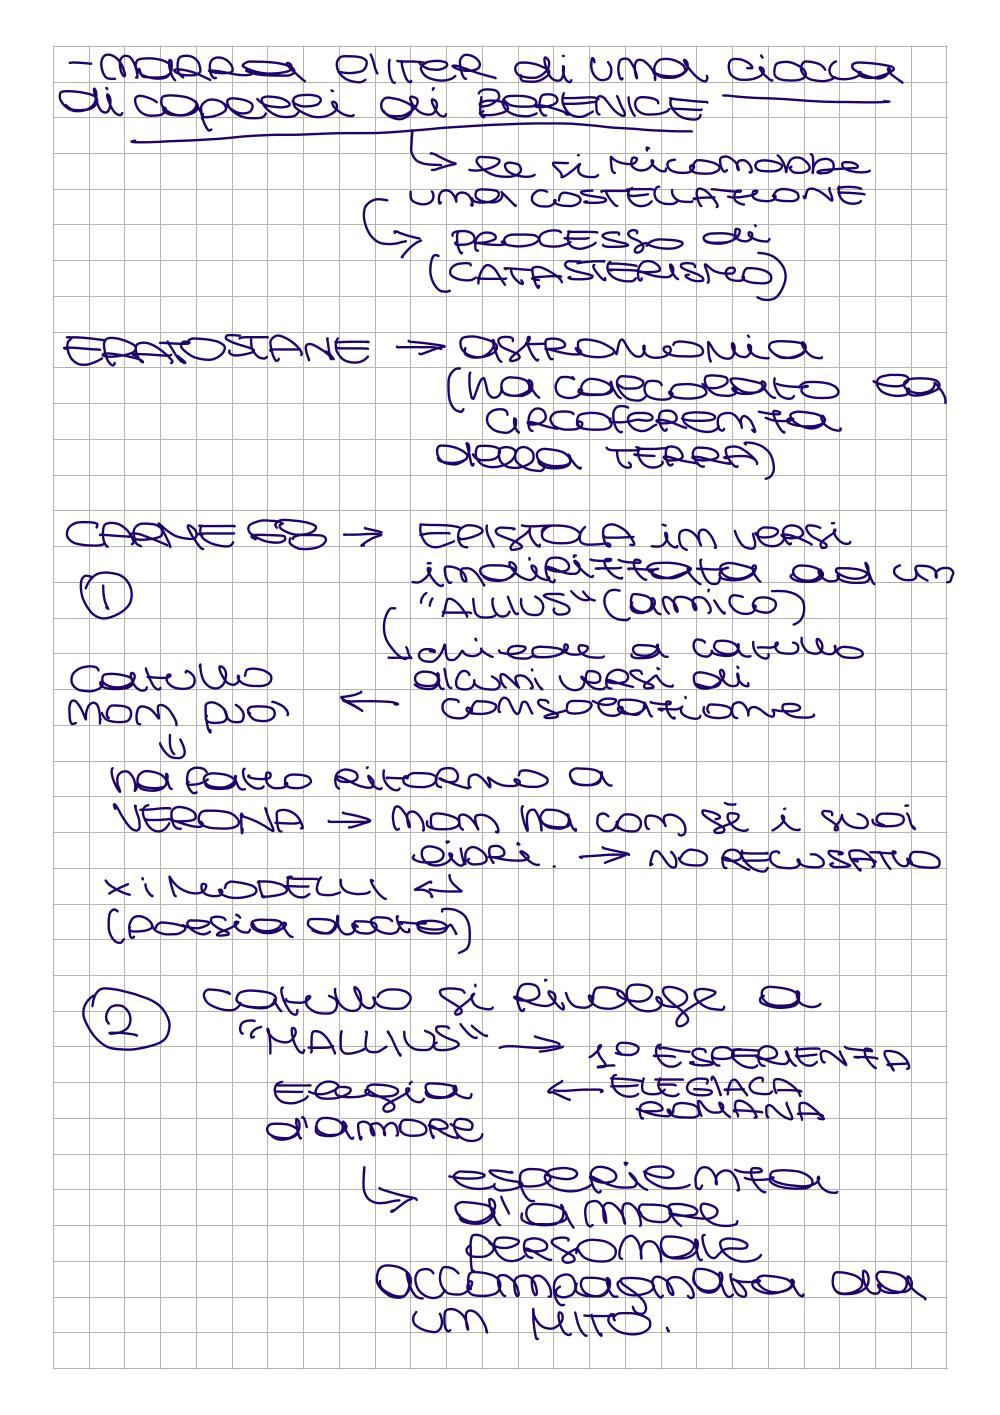 - narra l'ITER di una ciocca
di capelli di BERENICE
↳ le si riconobbe
una COSTELLAZIONE
↳ PROCESSO di
(CATASTERISMO)
ERATOSTANE → astronomia
(ha calcolato la
circoferenza
della TERRA)
CARME 68 → EPISTOLA in versi
① indirizzata ad un
"ALLIUS" (amico)
↳ chiede a catullo
Catullo alcuni versi di
non può ← consolazione
⇓
ha fatto ritorno a
VERONA → non ha con sè i suoi
libri. → NO RECUSATIO
x i MODELLI ↵
(poesia docta)
② catullo si rivolge a
"MALLIUS" → 1° ESPERIENZA
Elegia ← ELEGIACA
d'amore ROMANA
↳ esperienza
d'amore
personale
accompagnata da
un MITO.